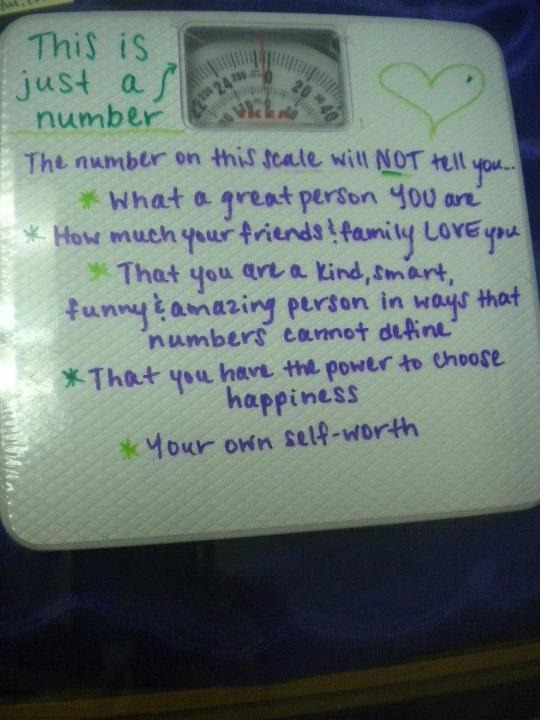 This is
just a
number
22 24 260 0 20 40
IKEA
The number on this scale will NOT tell you...
* What a great person YOU are
* How much your friends & family LOVE you
* That you are a kind, smart,
funny & amazing person in ways that
numbers cannot define
* That you have the power to choose
happiness
* Your own self-worth